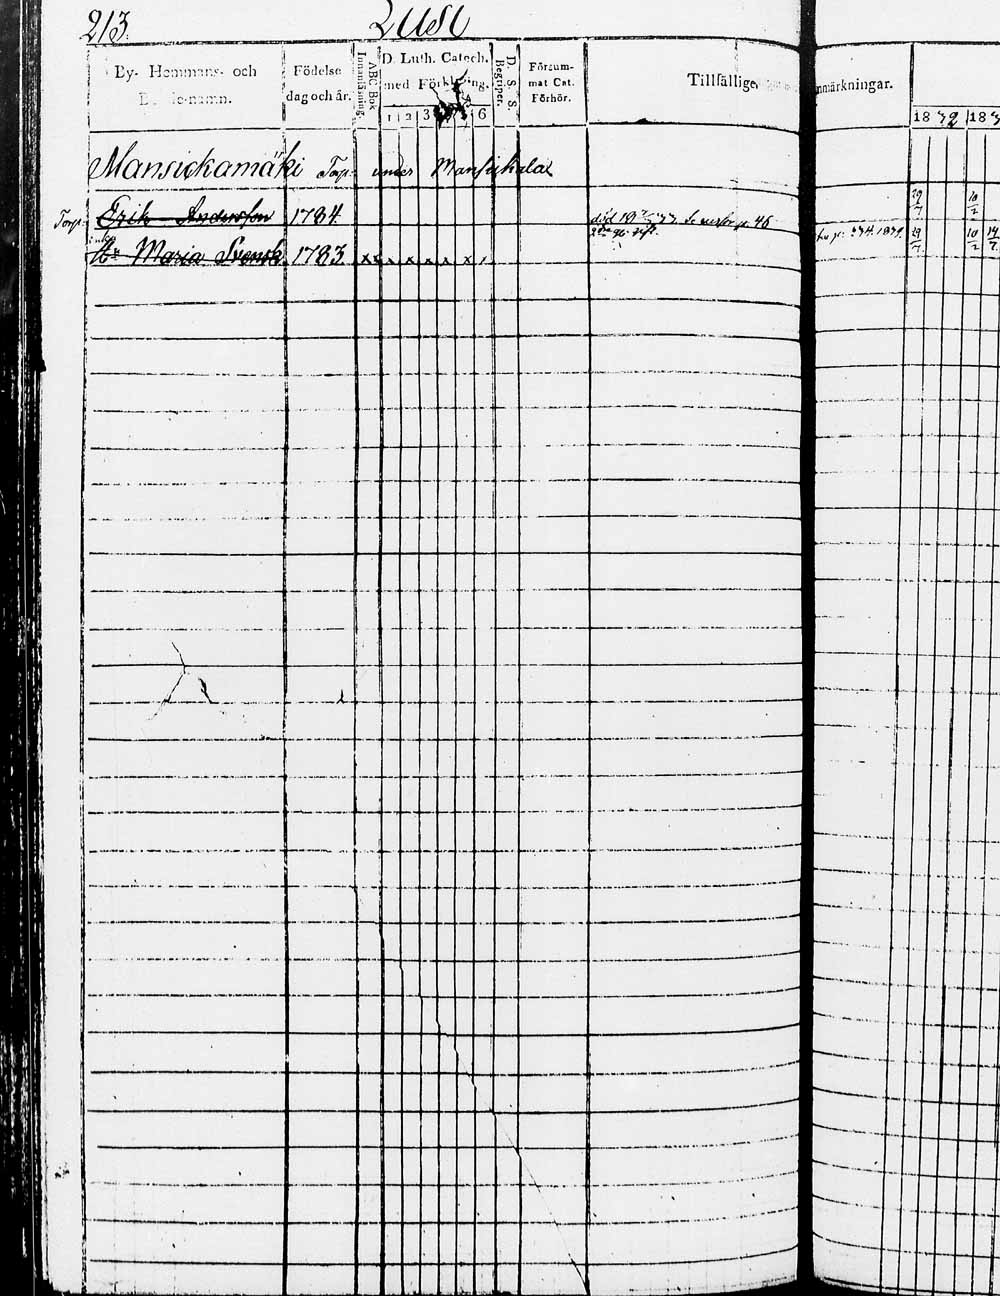 213.
Lusi
By- Hemmans- och
Födelse
dag och år.
ABC Bok
Innanläsning
D. Luth. Catech.
med Förklaring.
1 2 3 6
D. S. S.
Begriper.
Försum-
mat Cat.
Förhör.
Tillfällige
nmärkningar.
1832 183
Mansickamäki Torp under Mansikala
Torp: Erik Andersson 1784 död
29/7 10/2
Enka
H:u Maria Svensk 1783 x x x x x x x
29/7 10/2